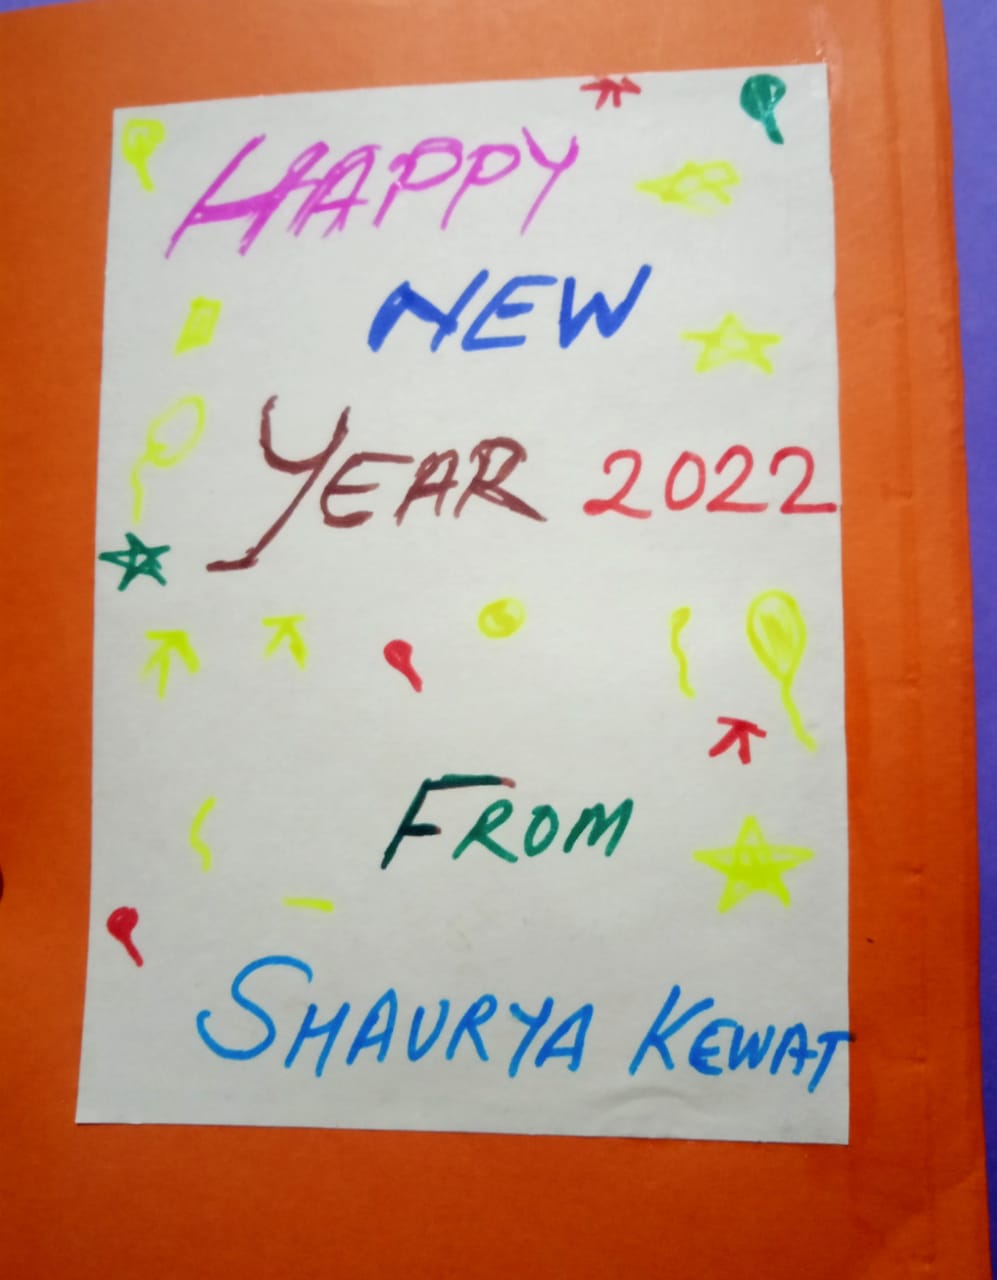 HAPPY
NEW
YEAR 2022
FROM
SHAURYA KEWAT